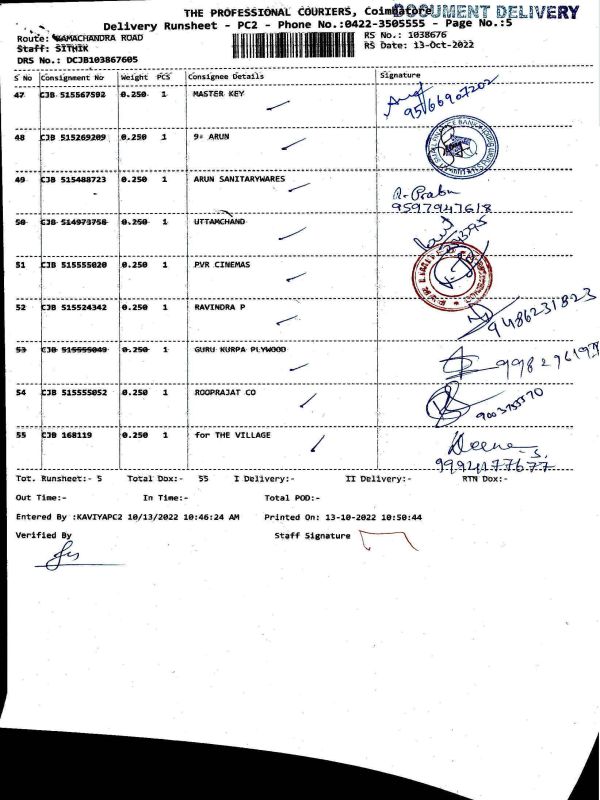 THE PROFESSIONAL COURIERS, Coimbatore
DOCUMENT DELIVERY
Delivery Runsheet - PC2 - Phone No.:0422-3505555 - Page No.:5
Route: RAMACHANDRA ROAD
RS No.: 1038676
Staff: SITHIK
RS Date: 13-Oct-2022
DRS No.: DCJB103867605
S No Consignment No Weight PCS Consignee Details Signature
47 CJB 515567592 0.250 1 MASTER KEY 9566907202
48 CJB 515269209 0.250 1 9* ARUN
49 CJB 515488723 0.250 1 ARUN SANITARYWARES R. Prabu
9597947618
50 CJB 514973758 0.250 1 UTTAMCHAND
51 CJB 515555020 0.250 1 PVR CINEMAS
52 CJB 515524342 0.250 1 RAVINDRA P 9486231823
53 CJB 515555049 0.250 1 GURU KURPA PLYWOOD
54 CJB 515555052 0.250 1 ROOPRAJAT CO
55 CJB 168119 0.250 1 for THE VILLAGE
9994177677
Tot. Runsheet:- 5 Total Dox:- 55 I Delivery:- II Delivery:- RTN Dox:-
Out Time:- In Time:- Total POD:-
Entered By :KAVIYAPC2 10/13/2022 10:46:24 AM Printed On: 13-10-2022 10:50:44
Verified By Staff Signature